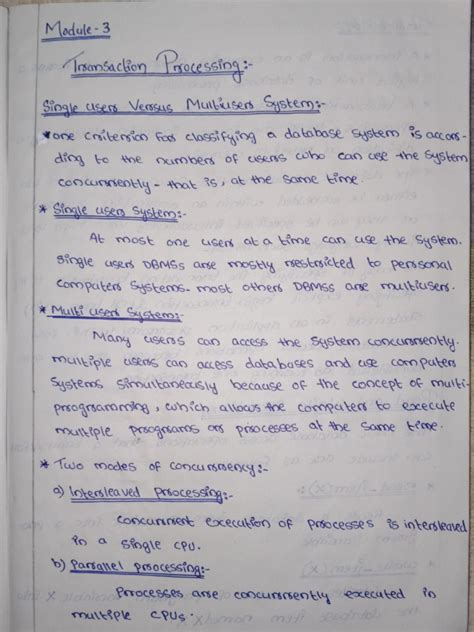 Module-3
Transaction Processing:-
Single user Versus Multiuser System:-
* one criterion for classifying a database system is accor-
ding to the number of users who can use the system
concurrently - that is, at the same time.
* Single user System:-
At most one user at a time can use the system.
single user DBMSs are mostly restricted to personal
computer systems. most others DBMSs are multiuser.
* Multi user System:
Many users can access the system concurrently.
multiple users can access databases and use computer
systems simultaneously because of the concept of multi
programming, which allows the computer to execute
multiple programs or processes at the same time.
* Two modes of concurrency:-
a) Interleaved processing:-
concurrent execution of processes is interleaved
in a single CPU.
b) Parallel processing:-
Processes are concurrently executed in
multiple CPUs.